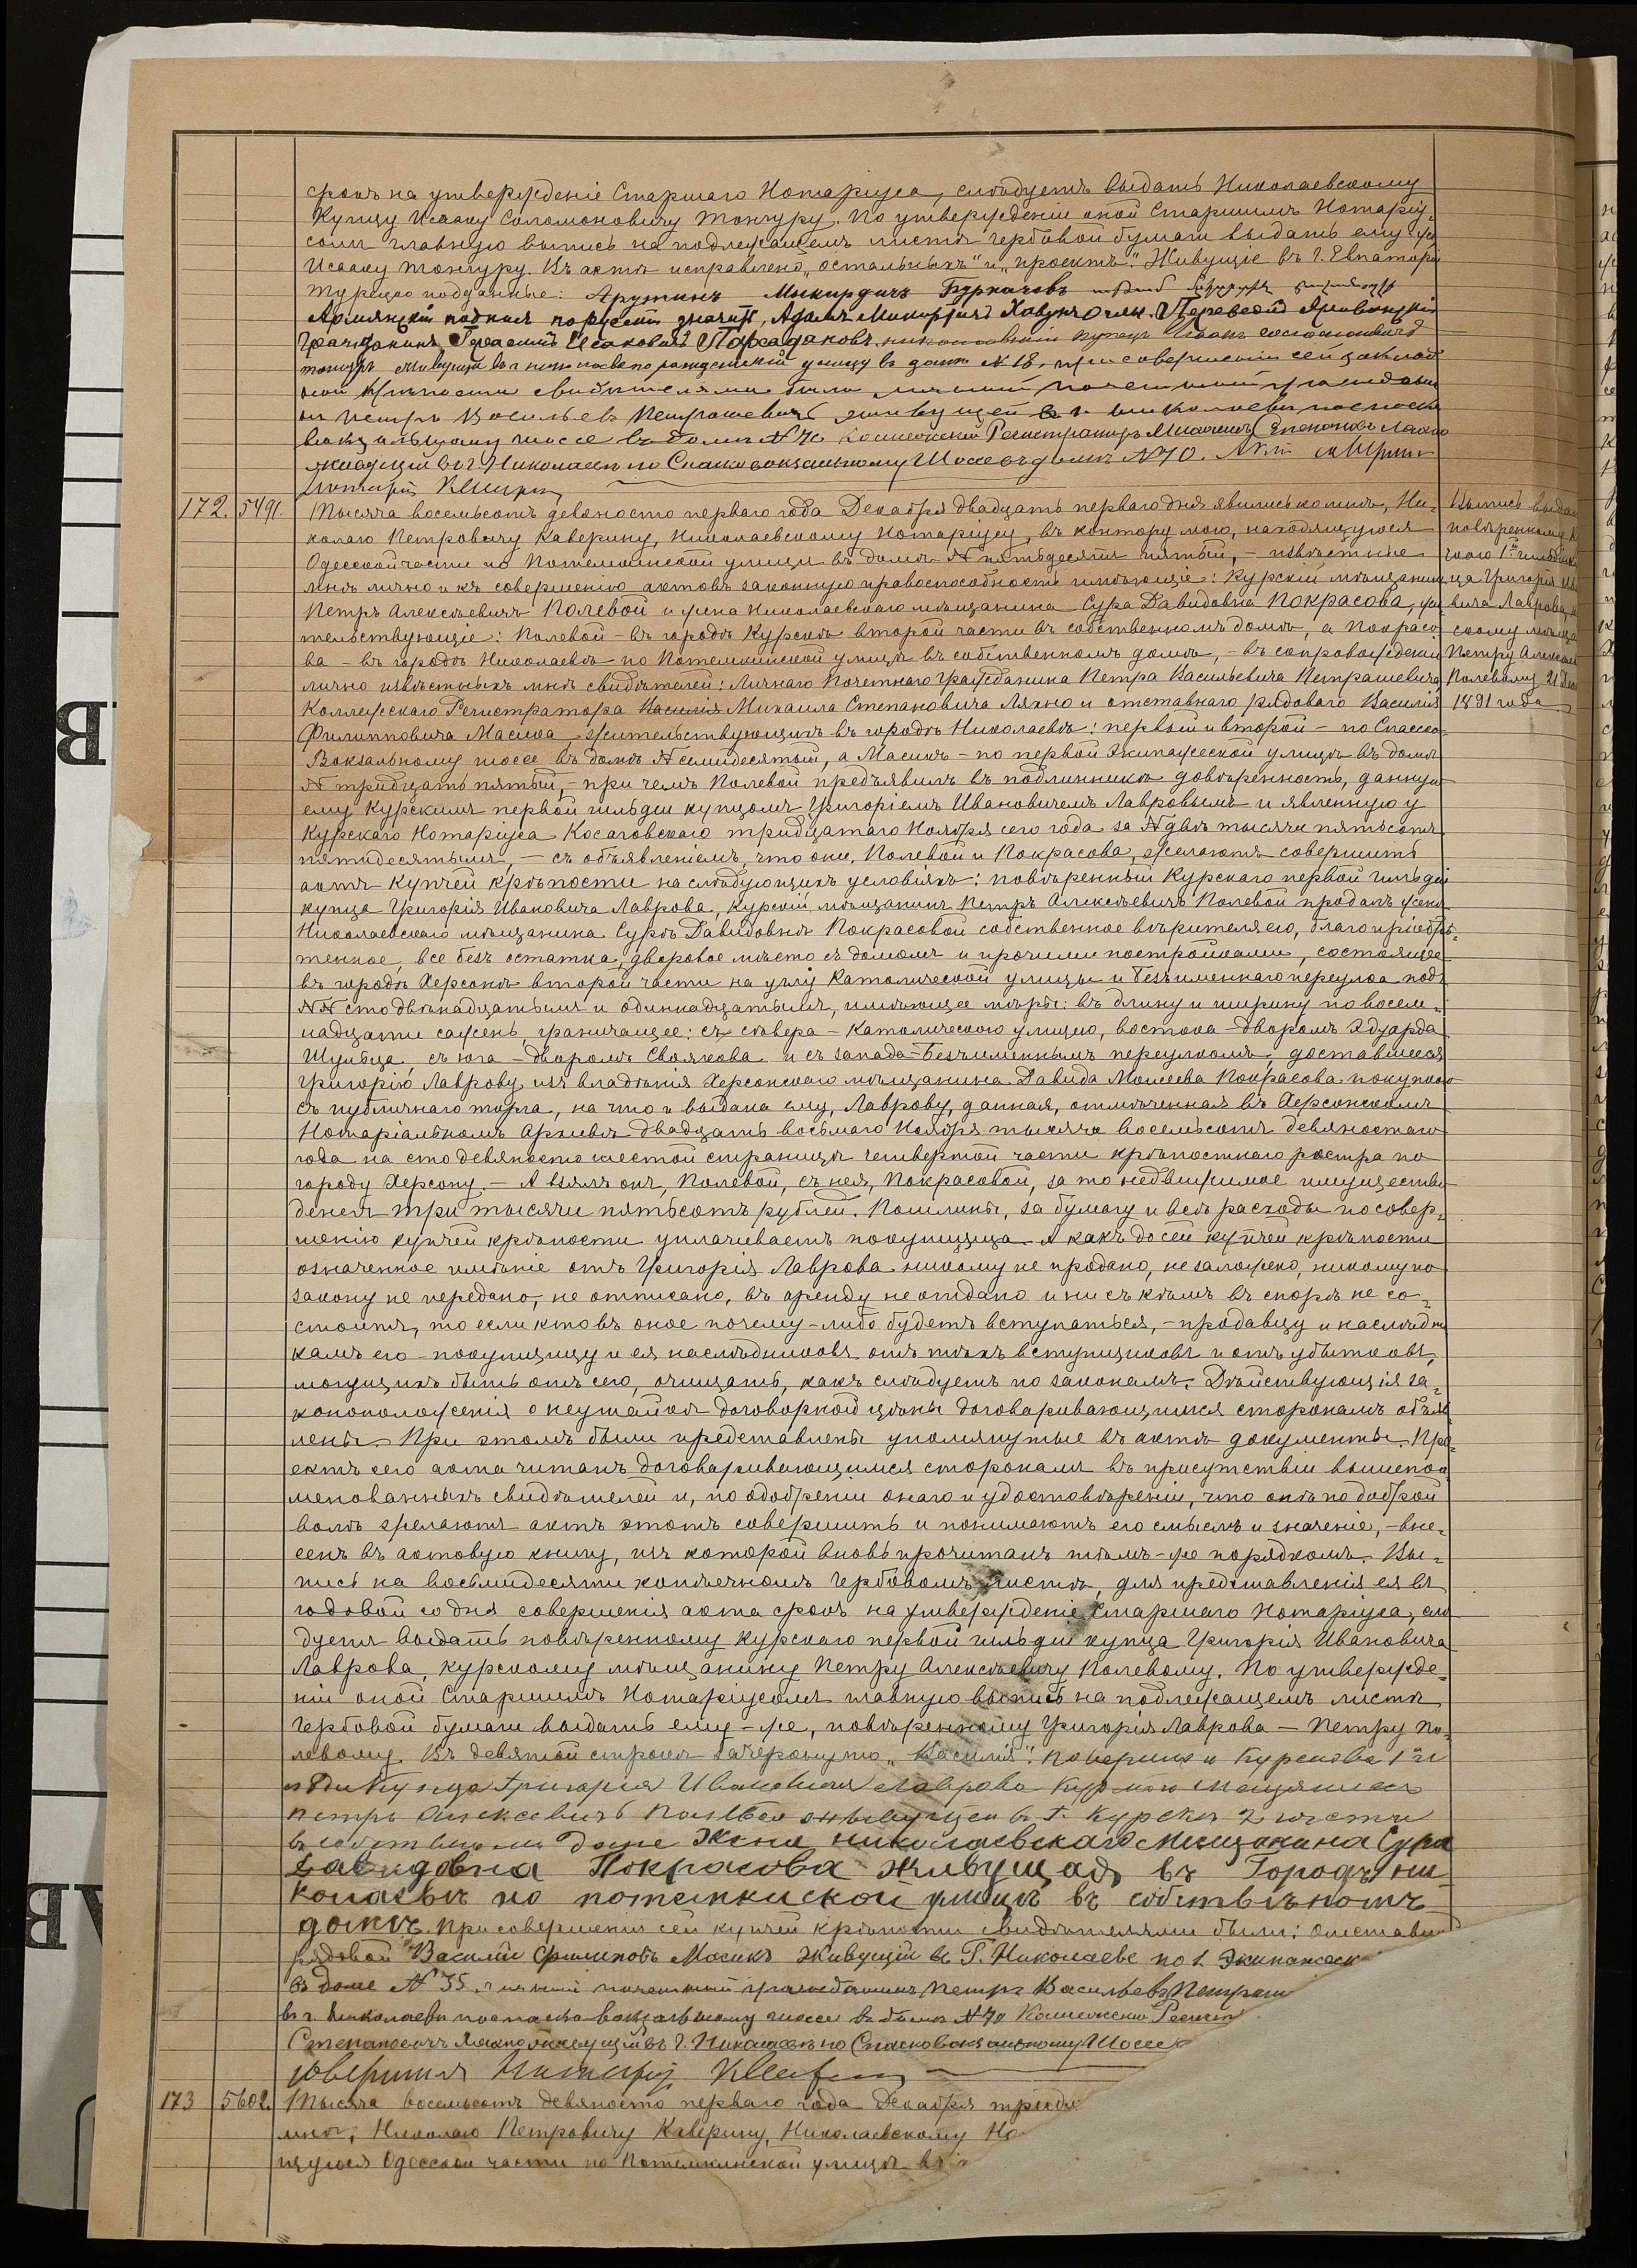 срокъ на утвержденіе Старшаго Нотаріуса, слѣдуетъ выдать Николаевскому
Купцу Исааку Соломоновичу Тонгуру. По утвержденіи оной Старшимъ Нотаріу-
сомъ главную выпись на подлежащемъ листѣ гербовой бумаги выдать ему-же
Исааку Тонгуру. Въ актѣ исправлено „остальныхъ" и „проектъ". Живущіе въ г. Евпаторіи
турецко подданные: Арутинъ Мыкырдичъ
Армянскій подписъ порусски значитъ, Адамъ
Гражданинъ Герасимъ Исаковичъ
тонгуръ живущій въ домѣ № 18, при совершеніи сей заклад
ной крѣпости свидѣтелями были личный почетный граждан
инъ Петръ Васильевъ Петрашевичъ живущей в г. Николаевѣ по спаско
вокзальному шоссе въ домѣ № 70 Коллежскій Регистраторъ Михаилъ Степановъ Ляхно
живущій въ г. Николаевѣ по Спасковокзальному Шоссе въ домѣ № 70.
Нотаріусъ
172. 5491. Тысяча восемьсотъ девяносто перваго года Декабря двадцать перваго дня явились ко мнѣ, Ни-
колаю Петровичу Каверину, Николаевскому Нотаріусу, въ контору мою, находящуюся
Одесской части по Потемкинской улицѣ въ домѣ № пятьдесятъ пятый, – извѣстные
мнѣ лично и къ совершенію актовъ законную правоспособность имѣющіе: Курскій мѣщанинъ
Петръ Алексѣевичъ Полевой и жена Николаевскаго мѣщанина Сура Давидовна Покрасова, жи
тельствующіе: Полевой – въ городѣ Курскѣ второй части въ собственномъ домѣ, а Покрасо
ва – въ городѣ Николаевѣ по Потемкинской улицѣ въ собственномъ домѣ, – въ сопровожденіи
лично извѣстныхъ мнѣ свидѣтелей: Личнаго Почетнаго Гражданина Петра Васильевича Петрашевича
Коллежскаго Регистратора Василія Михаила Степановича Ляхно и отставнаго рядоваго Василія
Филипповича Масика жительствующихъ въ городѣ Николаевѣ: первый и второй – по Спасско-
Вокзальному шоссе въ домѣ № семидесятый, а Масикъ – по первой Экипажеской улицѣ въ домѣ
№ тридцать пятый, – при чемъ Полевой предъявилъ въ подлинникѣ довѣренность, данную
ему Курскимъ первой гильдіи купцомъ Григоріемъ Ивановичемъ Лавровымъ и явленную у
Курскаго Нотаріуса Косаговскаго тридцатаго Ноября сего года за № двѣ тысячи пятьсотъ
пятидесятымъ, – съ объявленіемъ, что они, Полевой и Покрасова, желаютъ совершить
актъ купчей крѣпости на слѣдующихъ условіяхъ: повѣренный Курскаго первой гильдіи
купца Григорія Ивановича Лаврова, Курскій мѣщанинъ Петръ Алексѣевичъ Полевой продалъ женѣ
Николаевскаго мѣщанина Сурѣ Давидовнѣ Покрасовой собственное вѣрителя его, благопріобрѣ-
тенное, все безъ остатка, дворовое мѣсто съ домомъ и прочими постройками, состоящее
въ городѣ Херсонѣ второй части на углу Католической улицы и безъименнаго переулка подъ
№№ сто двѣнадцатымъ и одиннадцатымъ, имѣющее мѣры: въ длину и ширину по восем-
надцати сажень, граничащее: съ сѣвера – Католическою улицею, востока – дворомъ Эдуарда
Шульца, съ юга – дворомъ Своякова и съ запада – Безъименнымъ переулкомъ, доставшееся
Григорію Лаврову изъ владѣнія Херсонскаго мѣщанина Давида Моисеева Покрасова покупкою
съ публичнаго торга, на что и выдана ему, Лаврову, данная, отмѣченная въ Херсонскомъ
Нотаріальномъ Архивѣ двадцать восьмаго Ноября тысяча восемьсотъ девяностаго
года на сто девяносто шестой страницѣ четвертой части крѣпостнаго реэстра по
городу Херсону. – А взялъ онъ, Полевой, съ нея, Покрасовой, за то недвижимое имущество
денегъ три тысячи пятьсотъ рублей. Пошлины, за бумагу и всѣ расходы по совер-
шенію купчей крѣпости уплачиваетъ покупщица. А какъ до сей купчей крѣпости
означенное имѣніе отъ Григорія Лаврова никому не продано, не заложено, никому по
закону не передано, не отписано, въ аренду не отдано и ни съ кѣмъ въ спорѣ не со-
стоитъ, то если кто въ оное почему-либо будетъ вступаться, – продавцу и наслѣдни
камъ его покупщицу и ея наслѣдниковъ отъ тѣхъ вступщиковъ и отъ убытковъ,
могущихъ быть отъ сего, очищать, какъ слѣдуетъ по законамъ. Дѣйствующія за-
коноположенія о неутайкѣ договорной цѣны договаривающимися сторонамъ объяв
лены. При этомъ были представлены упомянутые въ актѣ документы. Про-
ектъ сего акта читанъ договаривающимися сторонамъ въ присутствіи вышепои
менованныхъ свидѣтелей и, по одобреніи онаго и удостовѣреніи, что онѣ по доброй
волѣ желаютъ актъ этотъ совершить и понимаютъ его смыслъ и значеніе, – вне-
сенъ въ актовую книгу, изъ которой вновь прочитанъ тѣмъ-же порядкомъ. Вы-
пись на восьмидесяти копѣечномъ гербовомъ листѣ, для представленія ея въ
годовой со дня совершенія акта срокъ на утвержденіе Старшаго Нотаріуса, слѣ
дуетъ выдать повѣренному Курскаго первой гильдіи купца Григорія Ивановича
Лаврова, Курскому мѣщанину Петру Алексѣевичу Полевому. По утвержде-
ніи оной Старшимъ Нотаріусомъ главную выпись на подлежащемъ листѣ
гербовой бумаги выдать ему-же, повѣренному Григорія Лаврова – Петру По-
левому. Въ девятой строкѣ зачеркнуто „Василія".
Купца Григория Ивановича Лаврова
Петръ Алексеевичъ Полевой живущей в г. Курскѣ 2 части
в собственомъ доме Жена николаевскаго мещанина Сура
Давидовна Покрасова живущая въ Городѣ ни
колаевѣ по потемкиской улицѣ въ собственомъ
домѣ. при совершеніи сей купчей крѣпости свидѣтелями были: отставн
рядовой Василій Филиповъ Масикъ Живущій въ Г. Николаеве по 1. Экипажеск
въ доме № 35, личный почетный гражданинъ Петръ Васильевъ Петраш
в г. Николаевѣ по спаско вокзальному шоссе въ домѣ № 70 Коллежскій Регистр
Степановичъ Ляхно живущій въ г. Николаевѣ по Спасковокзальному Шоссе
совершилъ Нотаріусъ
173 5602. Тысяча восемьсотъ девяносто перваго года Декабря тридц
мнѣ, Николаю Петровичу Каверину, Николаевскому Но
щуюся Одесской части по Потемкинской улицѣ въ
Выпись выдан
повѣренному
скаго 1й гильдіи куп
ца Григорія Ив
вича Лаврова,
скому мѣща
Петру Алексѣ
Полевому 21 Дек
1891 года